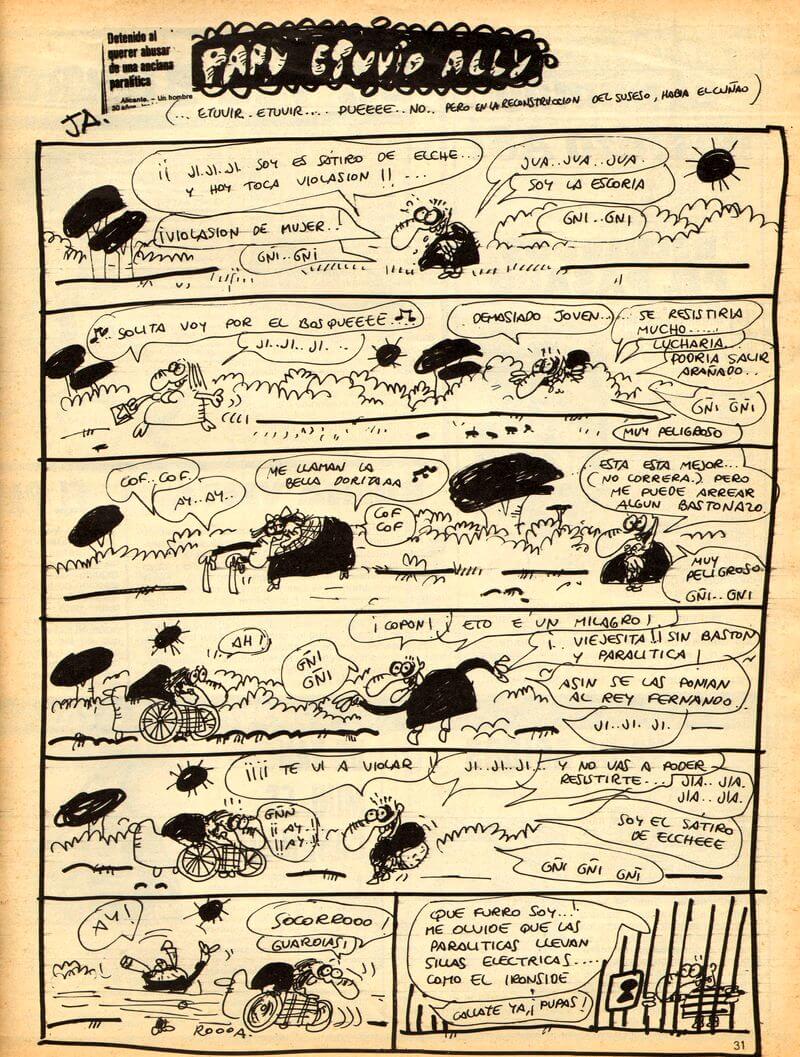 Detenido al
querer abusar
de una anciana
paralítica
Alicante. – Un hombre
PAPY ETUVIO ALLY
JA.
(... ETUVIR. ETUVIR.... PUEEEE..NO.. PERO EN LA RECONSTRUCCION DEL SUSESO, HABIA EL CUÑAO)
¡¡ JI.JI.JI. SOY ES SÁTIRO DE ELCHE...
Y HOY TOCA VIOLASION!!...
¡VIOLASION DE MUJER..!
GÑI..GÑI
JUA..JUA..JUA.
SOY LA ESCORIA
GÑI..GÑI
..SOLITA VOY POR EL BOSQUEEEE....
JI..JI..JI...
DEMASIADO JOVEN...
.. SE RESISTIRIA
MUCHO.....
LUCHARIA..
PODRIA SALIR
ARAÑADO..
GÑI GÑI
MUY PELIGROSO
COF..COF.
AY..AY..
ME LLAMAN LA
BELLA DORITAAA
COF
COF
ESTA ESTA MEJOR...
(NO CORRERA.) PERO
ME PUEDE ARREAR
ALGUN BASTONAZO.
MUY
PELIGROSO.
GÑI..GÑI
AH!
GÑI
GÑI
¡COPON! ¡ETO E UN MILAGRO!
¡.. VIEJESITA!! SIN BASTON
Y PARALITICA!
ASIN SE LAS PONIAN
AL REY FERNANDO..
JI..JI. JI.
¡¡¡¡ TE VI A VIOLAR!
JI..JI..JI.. Y NO VAS A PODER
RESISTIRTE.... JIA..JIA.
JIA..JIA.
GÑÑ
¡¡AY..!!
¡¡AY.!
SOY EL SÁTIRO
DE ELCHEEE
GÑI GÑI GÑI
AY!
SOCORROOO!
GUARDIAS!
ROOÔA.
¡QUE FURRO SOY...!
ME OLVIDE QUE LAS
PARALITICAS LLEVAN
SILLAS ELECTRICAS....
COMO EL IRONSIDE
CALLATE YA,¡PUPAS!
31